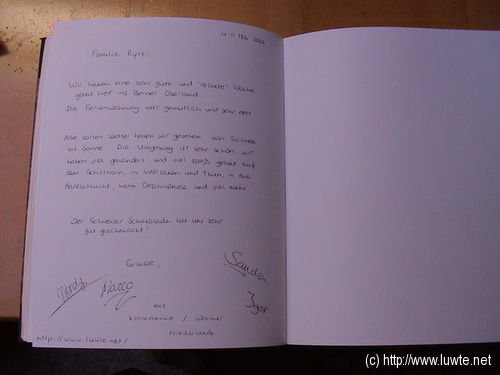 4-11 Mai 2002
Familie Ryter,
Wir haben eine sehr gute und "relaxte" Woche
gehabt hier ins Berner Oberland.
Die Ferienwohnung war gemütlich und sehr nett.
Alle sorten Wetter haben wir gesehen: von Schnee
bis Sonne. Die Umgebung ist sehr schön, wir
haben viel gewandert und viel spaß gehabt auf
dem Schilthorn, in Interlaken und Thun, in die
Aareschlucht, beim Oeschinensee und viel mehr.
Der Schweizer Schokolade hat uns sehr
gut geschmackt!
Grüsse,
Sandra
Marco
Igor
aus
Krommenie / Wormer
Niederlande
http://www.luwte.net/
(c) http://www.luwte.net